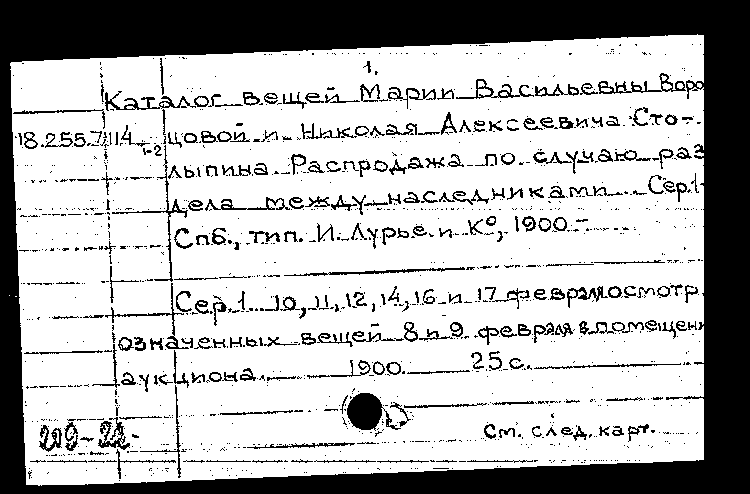 1.
Каталог вещей Марии Васильевны Воро
18.255.7.114 1-2 цовой и Николая Алексеевича Сто-
лыпина. Распродажа по случаю раз
дела между наследниками. Сер.1-
Спб., тип. И. Лурье и К°, 1900.-
Сер.1 10, 11, 12, 14, 16 и 17 февраля осмотр
означенных вещей 8 и 9 февраля в помещен
аукциона. 1900. 25 с.
См. след. карт.